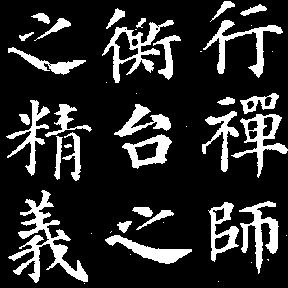 行禪師
衡台之
之精義